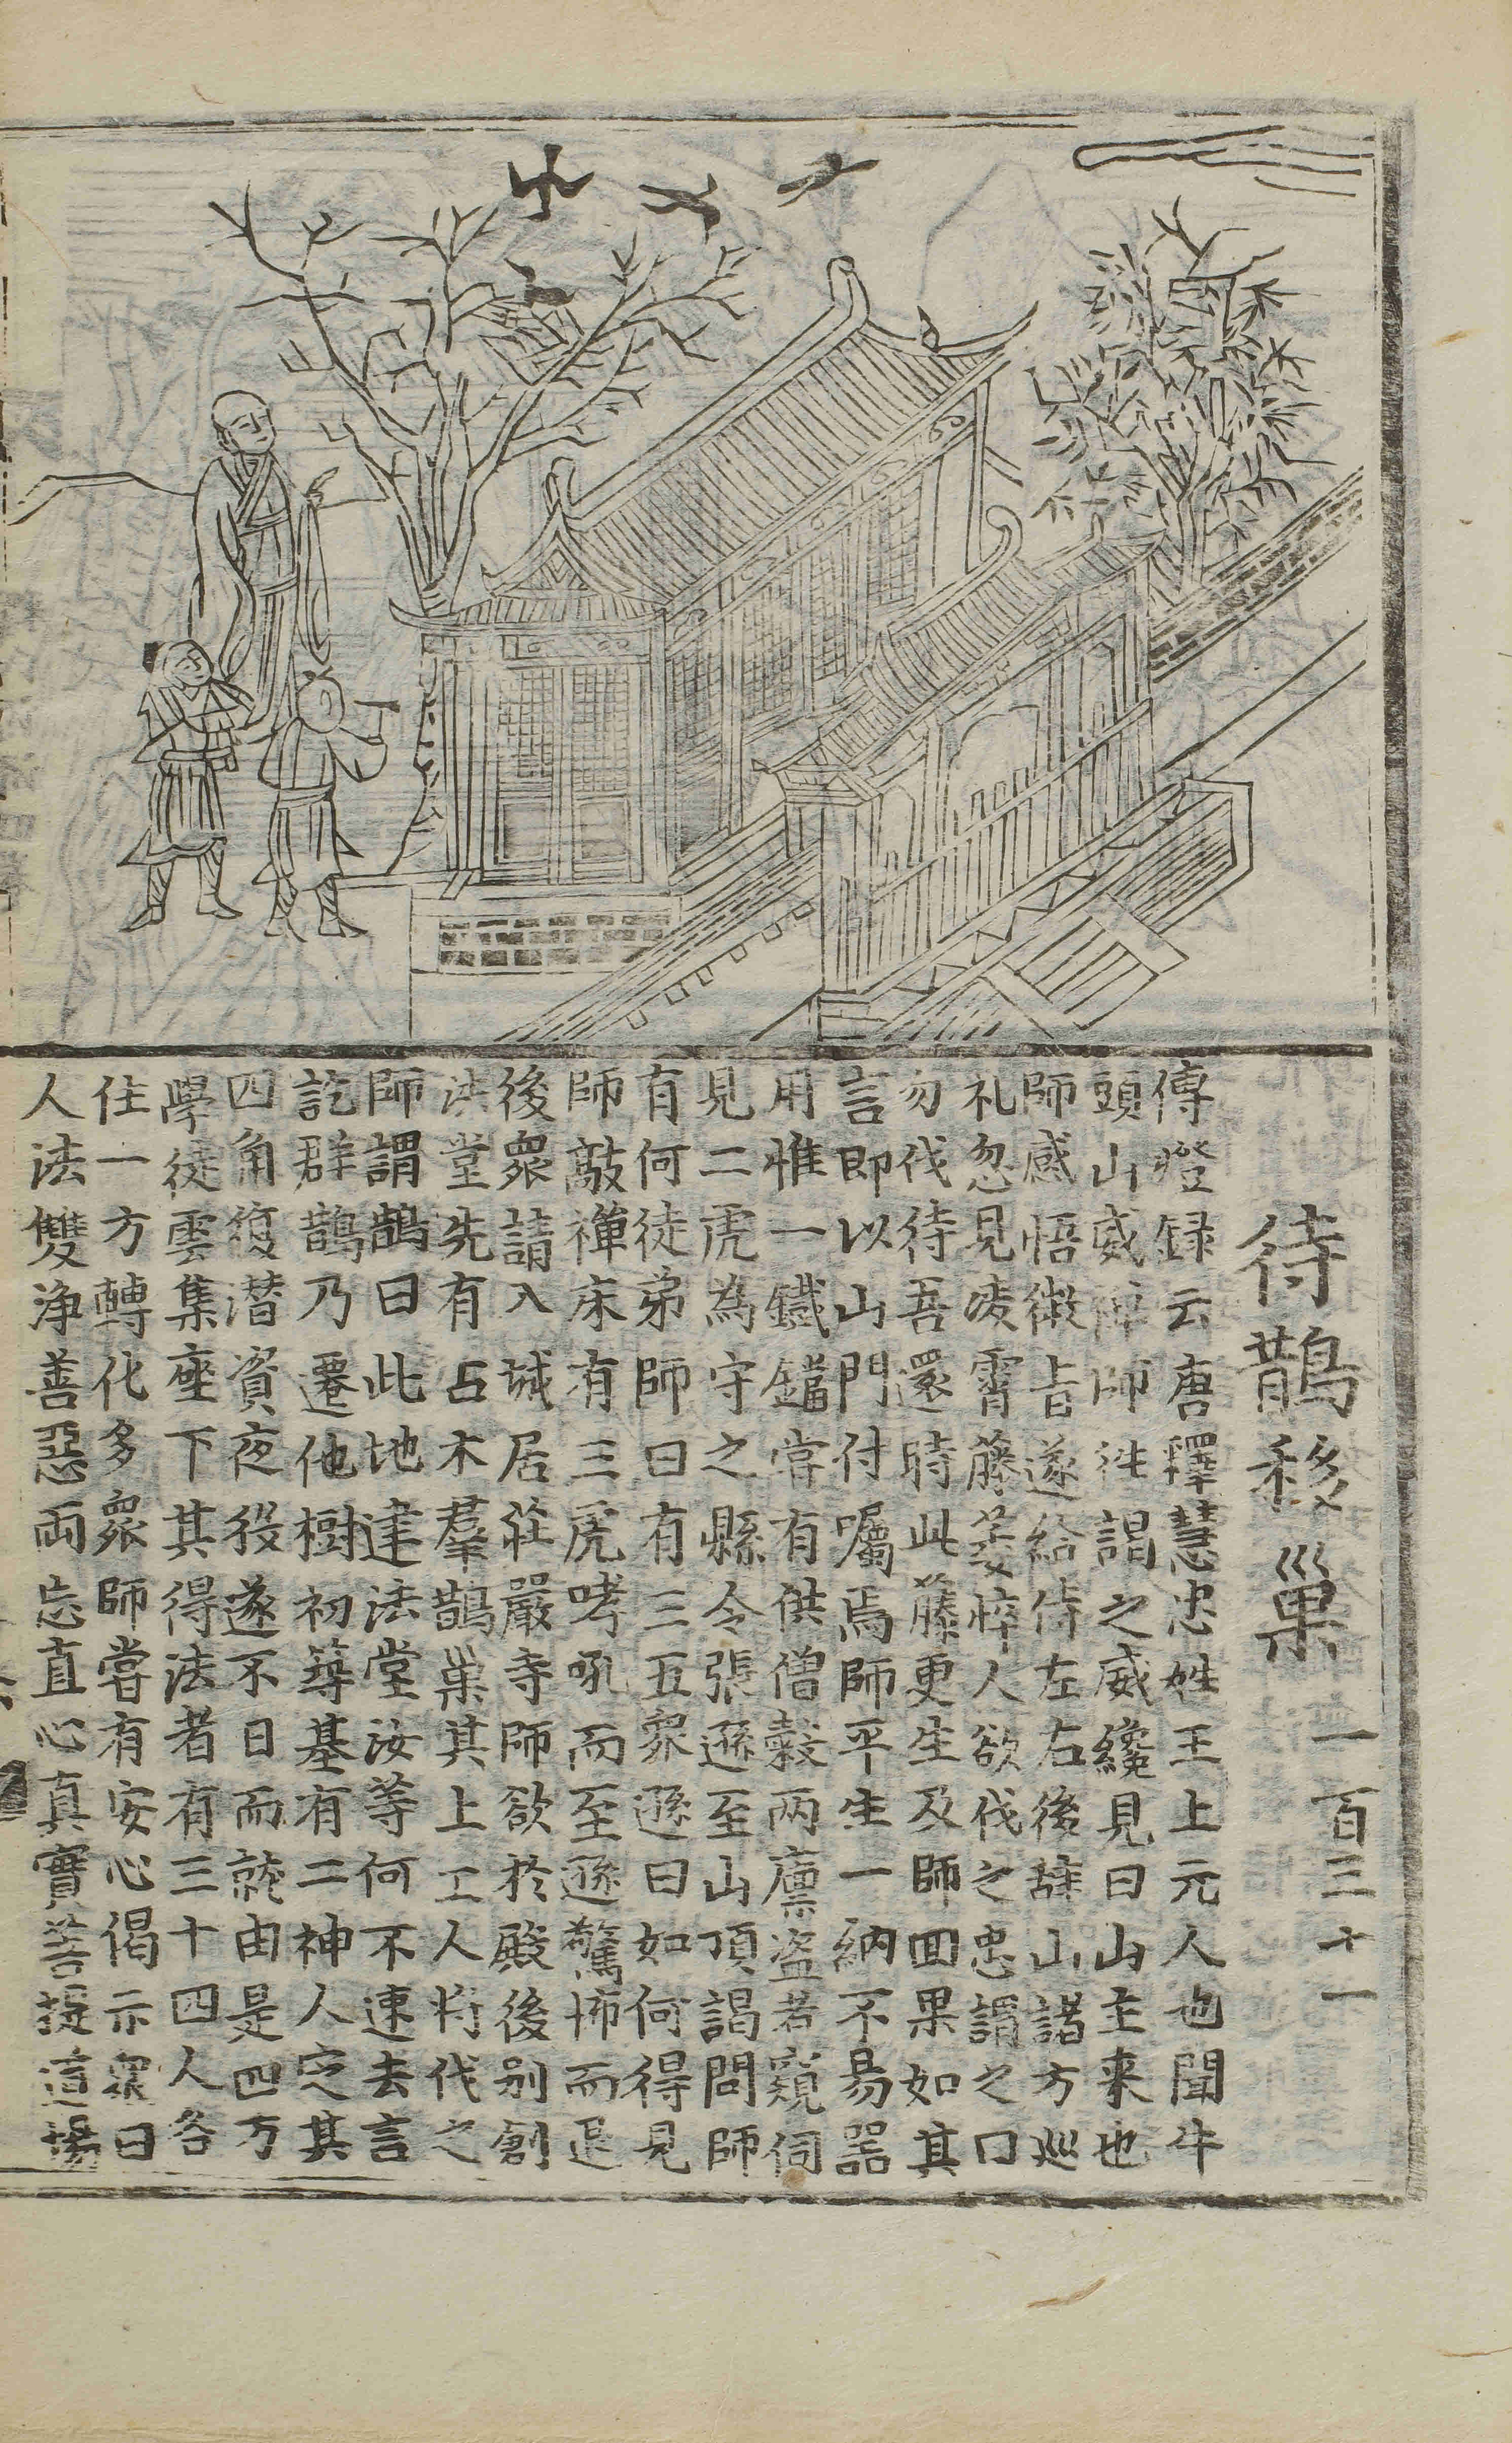 待鵲移巢 一百三十一
傳燈録云唐釋慧忠姓王上元人也聞牛
頭山威禪師徃謁之威纔見曰山主来也
師感悟微旨遂給侍左右後辞山諸方巡
礼忽見凌霄藤萎悴人欲伐之忠謂之曰
勿伐待吾還時此藤更生及師回果如其
言即以山門付囑焉師平生一納不易器
用惟一鐵鐺嘗有供僧穀兩廪盗者窺伺
見二虎為守之縣令張遜至山頂謁問師
有何徒弟師曰有三五衆遜曰如何得見
師敲禪床有三虎哮吼而至遜驚怖而退
後衆請入城居莊嚴寺師欲於殿後别創
法堂先有占木羣鵲巢其上工人将伐之
師謂鵲曰此地建法堂汝等何不速去言
訖群鵲乃遷他樹初築基有二神人定其
四角復潜資夜役遂不日而就由是四方
學徒雲集座下其得法者有三十四人各
住一方轉化多衆師嘗有安心偈示衆曰
人法雙浄善惡両忘直心真實菩提道場